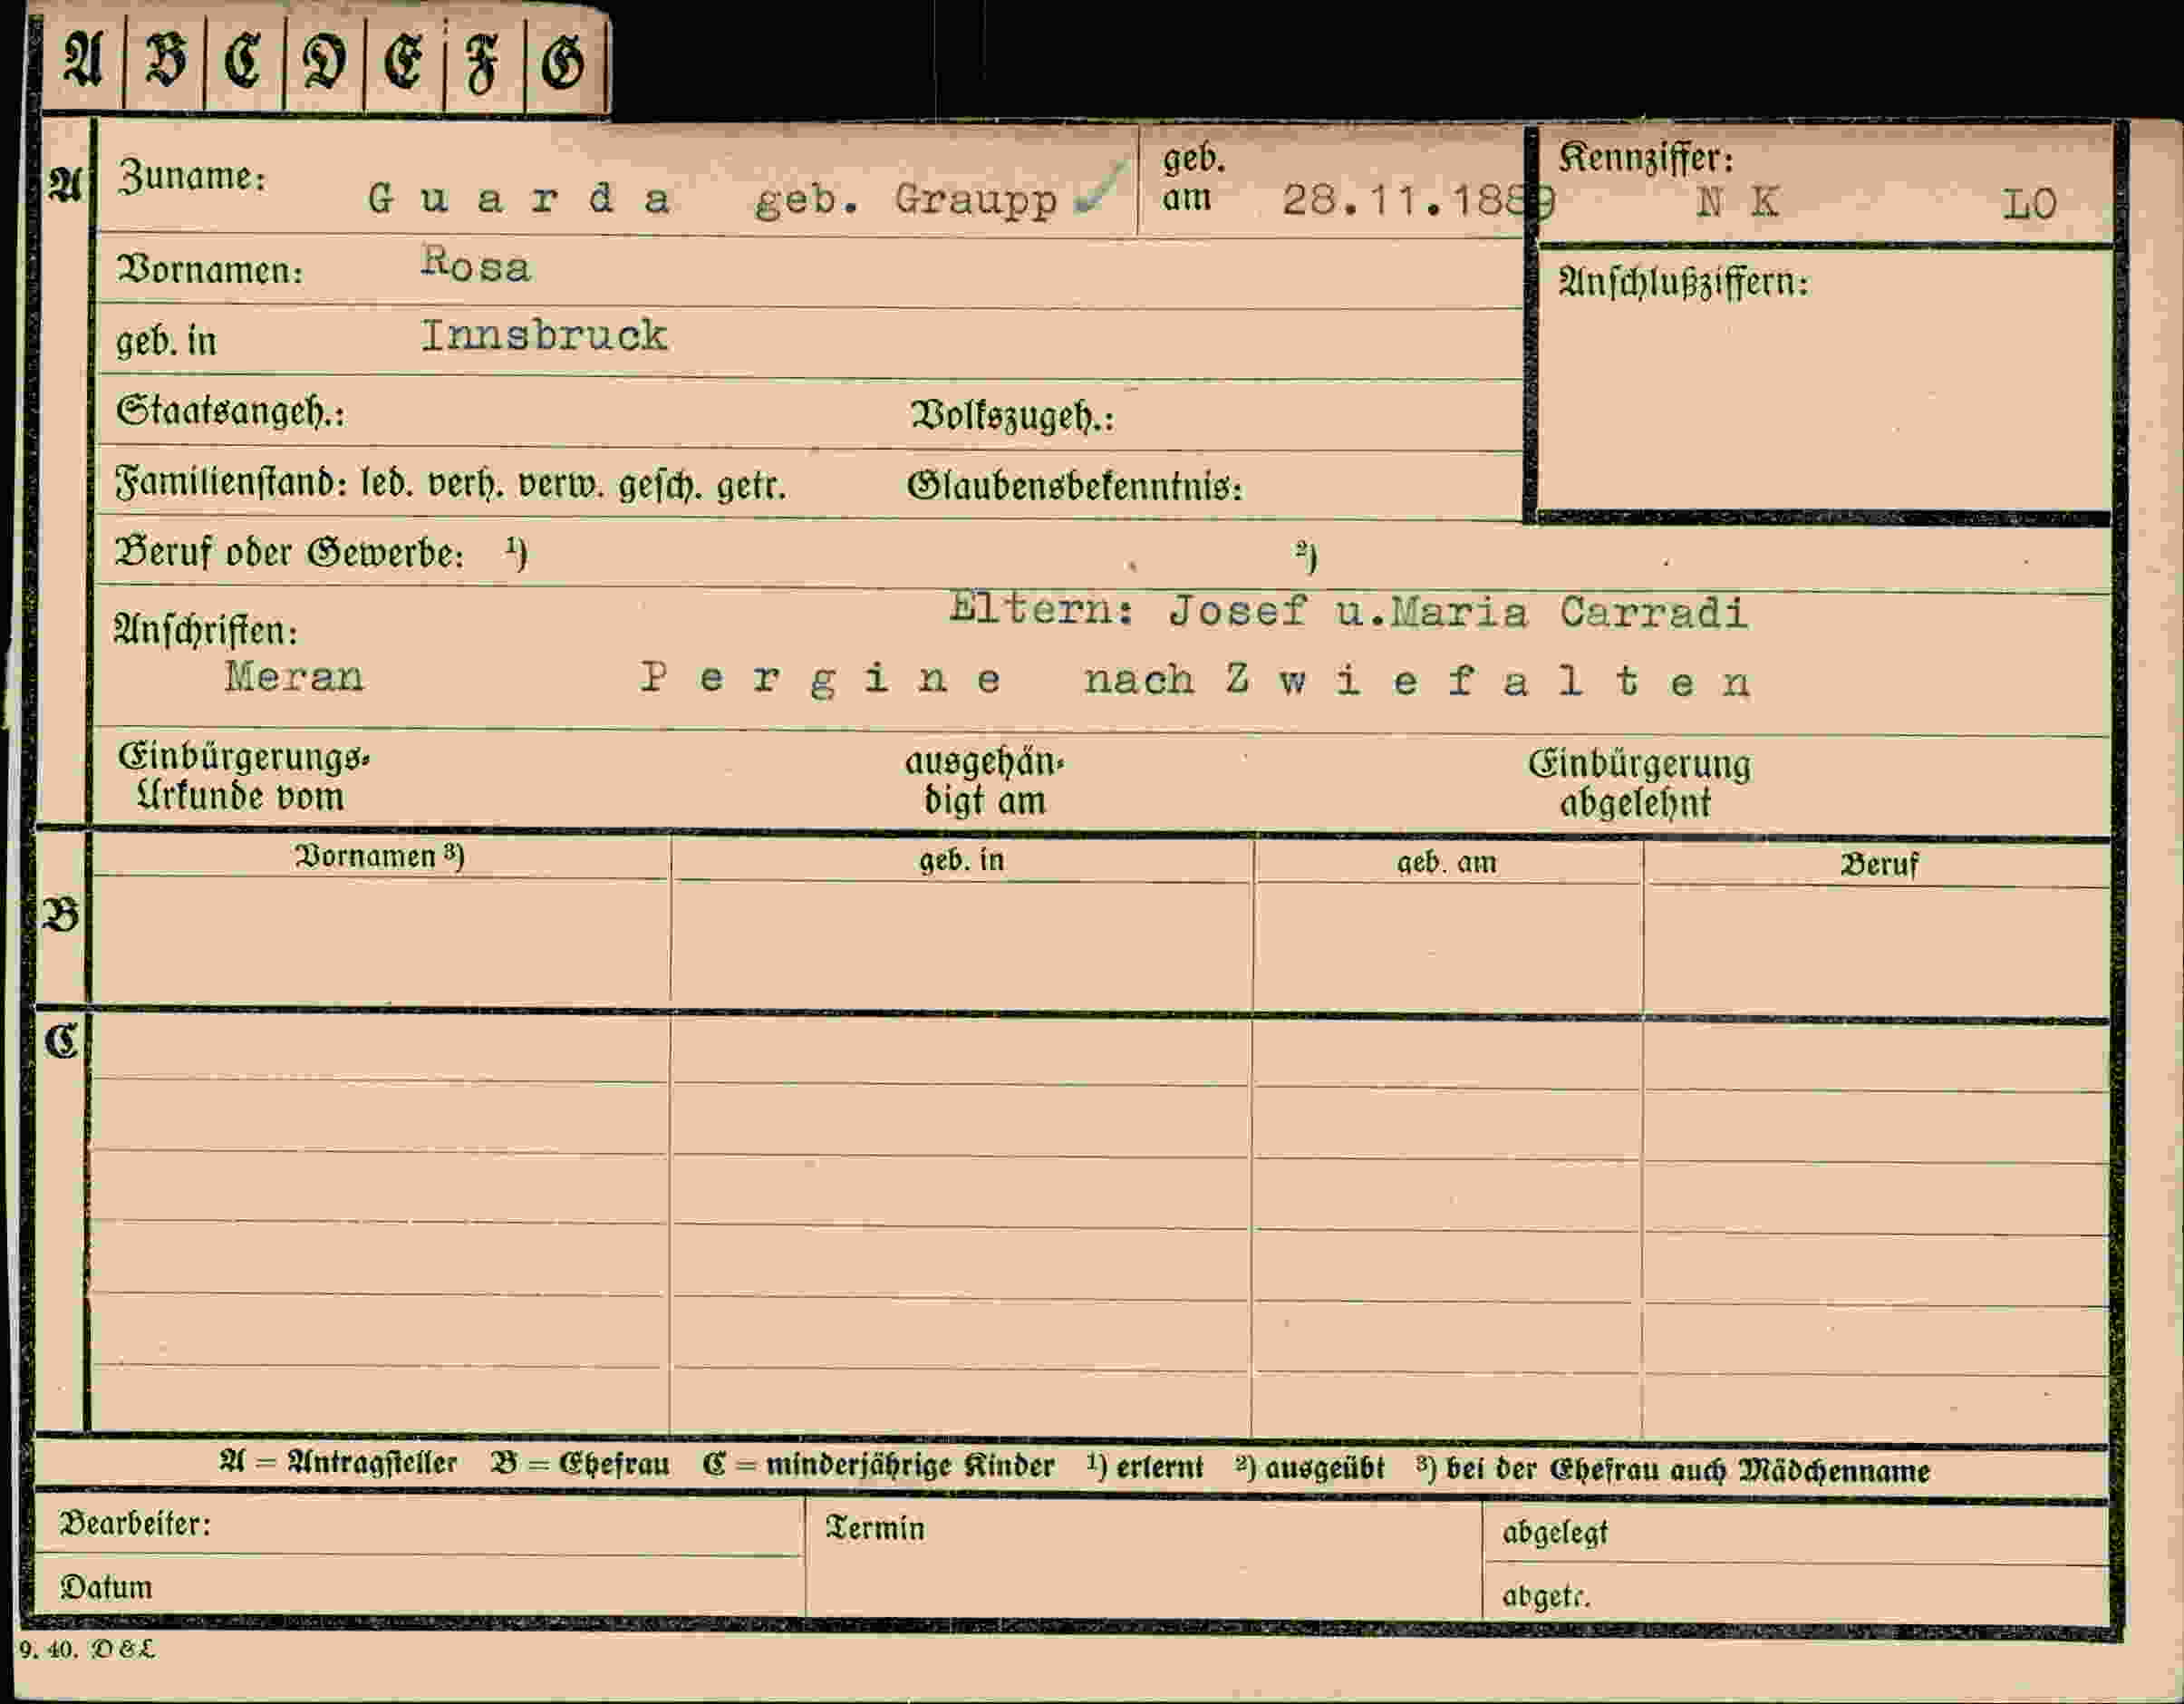 A B C D E F G
A Zuname: Guarda geb. Graupp geb. am 28.11.1889 Kennziffer: N K LO
Vornamen: Rosa Anschlußziffern:
geb. in Innsbruck
Staatsangeh.: Volkszugeh.:
Familienstand: led. verh. verw. gesch. getr. Glaubensbekenntnis:
Beruf oder Gewerbe: ¹) ²)
Eltern: Josef u.Maria Carradi
Anschriften:
Meran Pergine nach Zwiefalten
Einbürgerungs- ausgehän- Einbürgerung
Urkunde vom digt am abgelehnt
Vornamen ³) geb. in geb. am Beruf
B
C
A = Antragsteller B = Ehefrau C = minderjährige Kinder ¹) erlernt ²) ausgeübt ³) bei der Ehefrau auch Mädchenname
Bearbeiter: Termin abgelegt
Datum abgetr.
9. 40. D & L